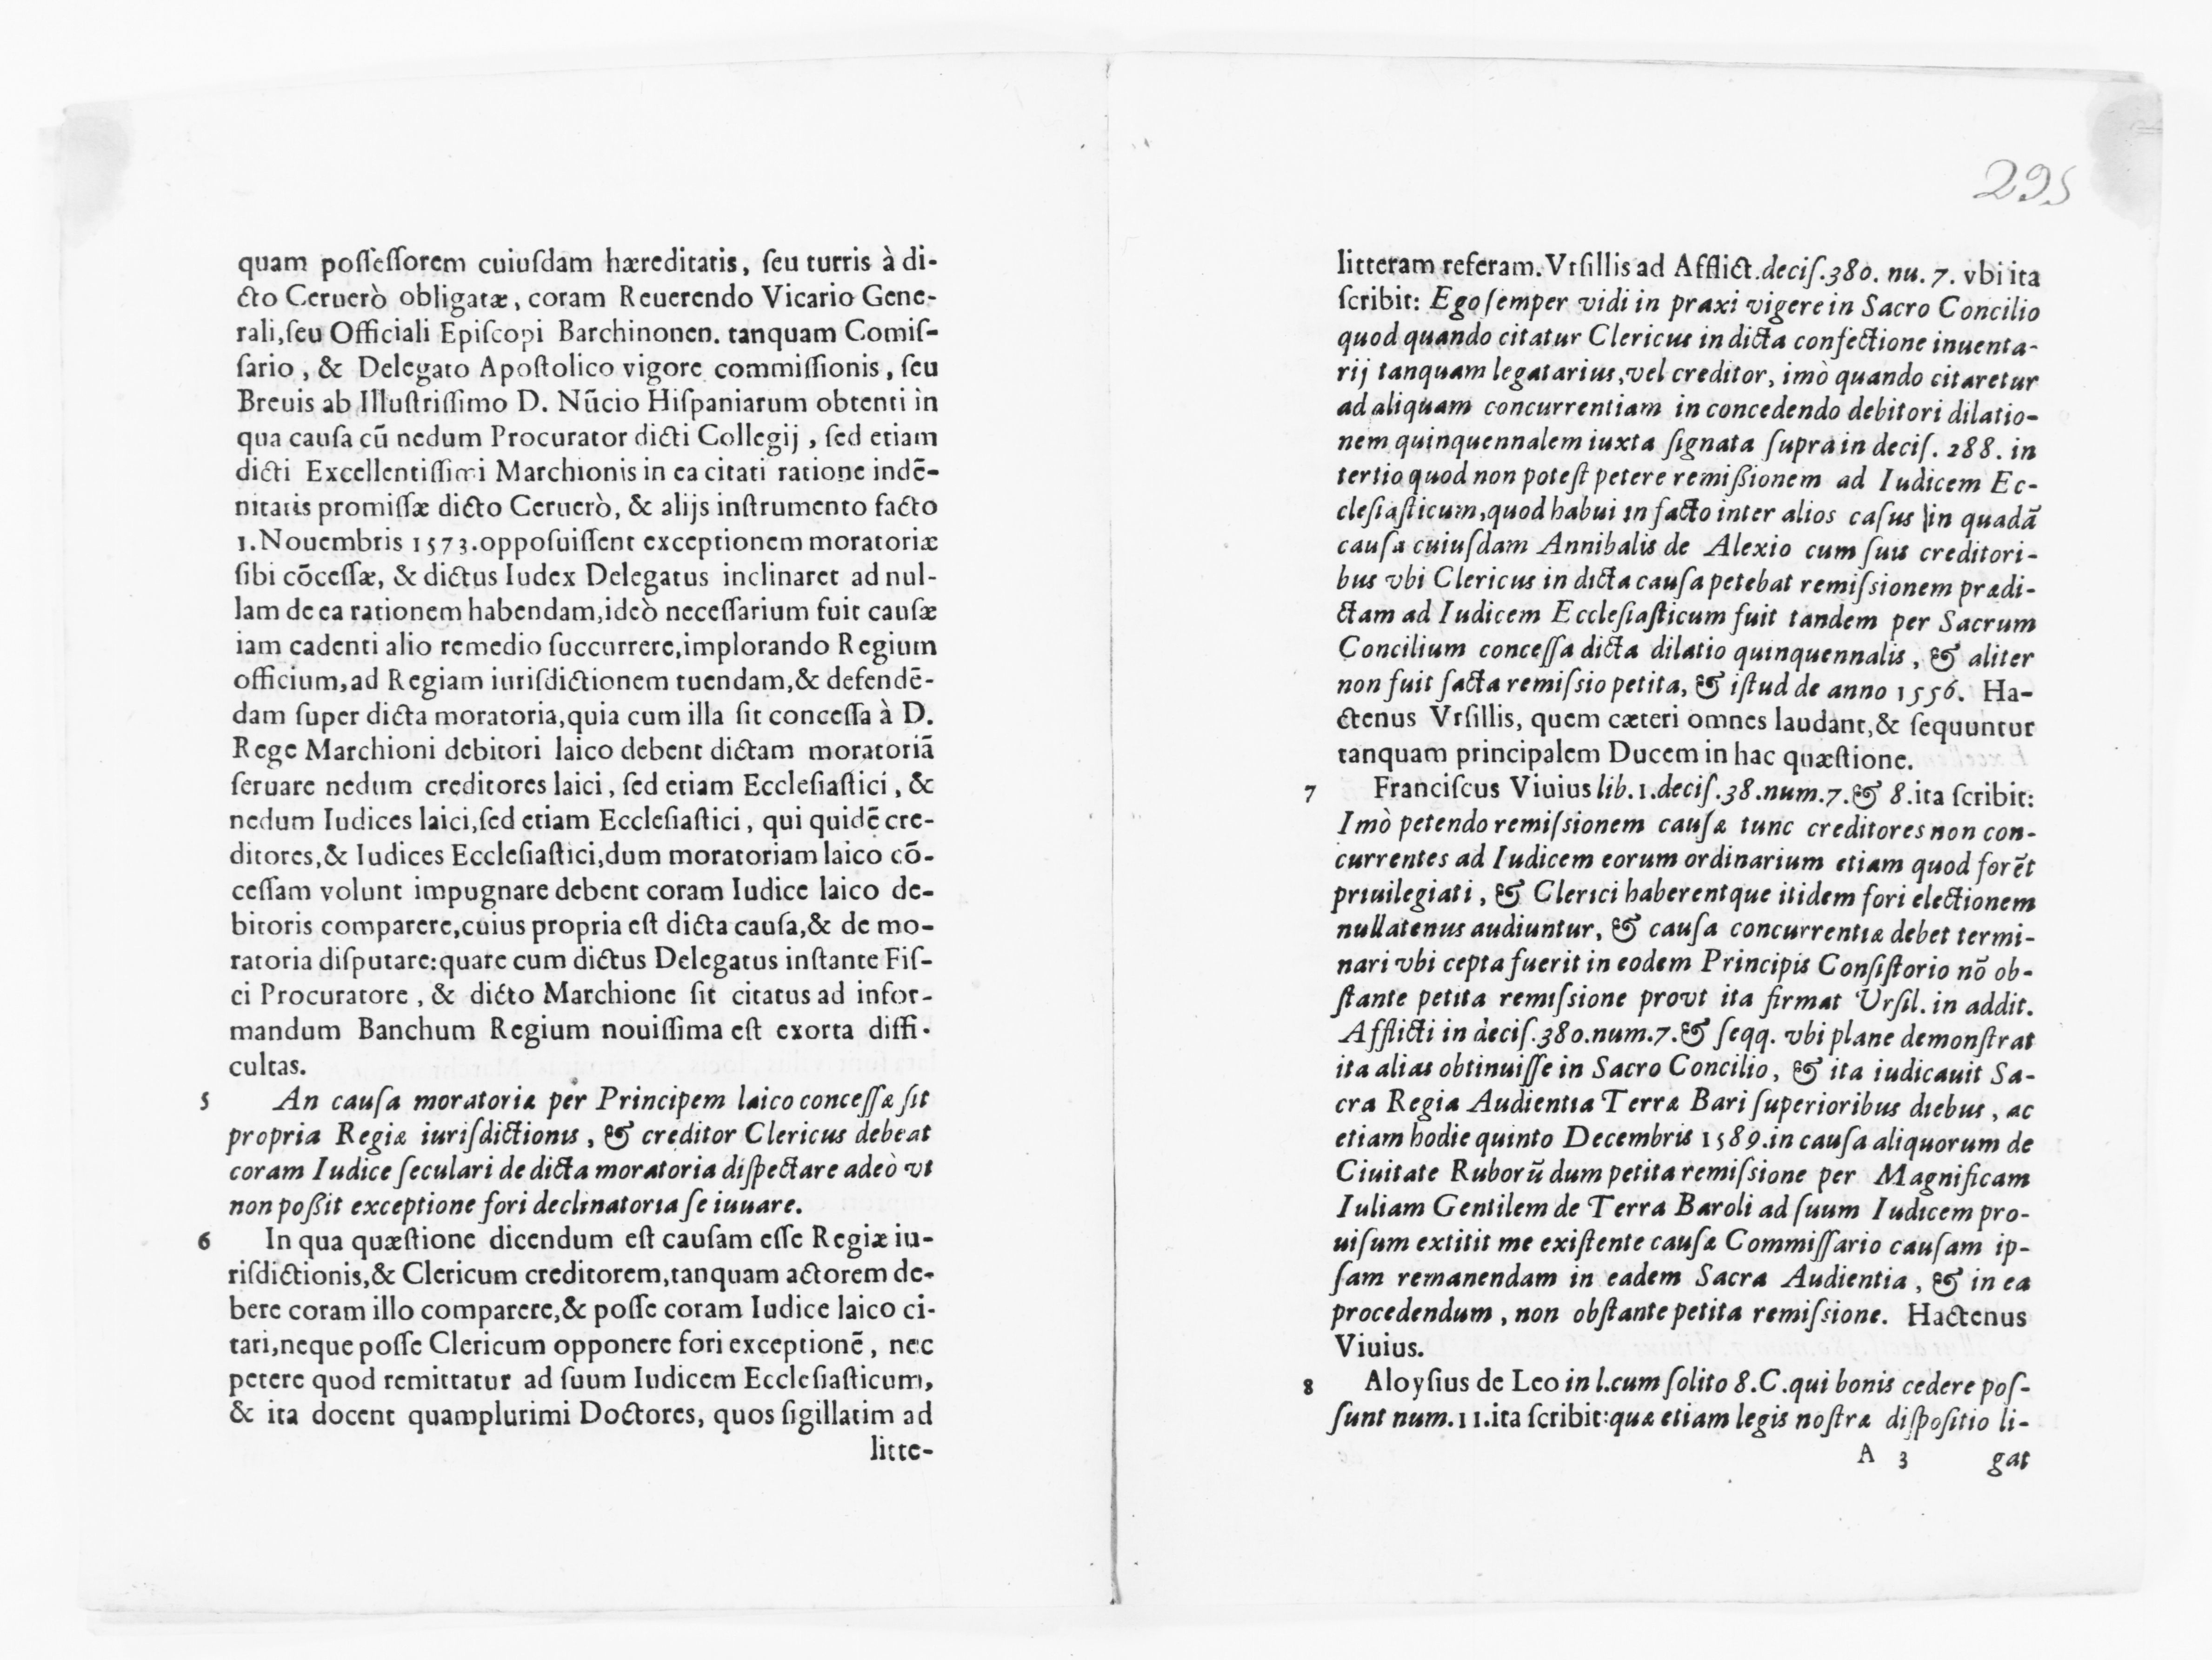 quam poſſeſſorem cuiuſdam hæreditatis, ſeu turris à di-
cto Ceruerò obligatæ, coram Reuerendo Vicario Gene-
rali, ſeu Officiali Epiſcopi Barchinonen. tanquam Comiſ-
ſario, & Delegato Apoſtolico vigore commiſſionis, ſeu
Breuis ab Illuſtriſſimo D. Nũcio Hiſpaniarum obtenti in
qua cauſa cũ nedum Procurator dicti Collegij, ſed etiam
dicti Excellentiſſimi Marchionis in ea citati ratione indẽ-
nitatis promiſſæ dicto Ceruerò, & alijs inſtrumento facto
1. Nouembris 1573. oppoſuiſſent exceptionem moratoriæ
ſibi cõceſſæ, & dictus Iudex Delegatus inclinaret ad nul-
lam de ea rationem habendam, ideò neceſſarium fuit cauſæ
iam cadenti alio remedio ſuccurrere, implorando Regium
officium, ad Regiam iuriſdictionem tuendam, & defendẽ-
dam ſuper dicta moratoria, quia cum illa ſit conceſſa à D.
Rege Marchioni debitori laico debent dictam moratoriã
ſeruare nedum creditores laici, ſed etiam Eccleſiaſtici, &
nedum Iudices laici, ſed etiam Eccleſiaſtici, qui quidẽ cre-
ditores, & Iudices Eccleſiaſtici, dum moratoriam laico cõ-
ceſſam volunt impugnare debent coram Iudice laico de-
bitoris comparere, cuius propria eſt dicta cauſa, & de mo-
ratoria diſputare: quare cum dictus Delegatus inſtante Fiſ-
ci Procuratore, & dicto Marchione ſit citatus ad infor-
mandum Banchum Regium nouiſſima eſt exorta diffi-
cultas.
5 An cauſa moratoriæ per Principem laico conceſſæ ſit
propria Regiæ iuriſdictionis, & creditor Clericus debeat
coram Iudice ſeculari de dicta moratoria diſpectare adeò vt
non poßit exceptione fori declinatoria ſe iuuare.
6 In qua quæſtione dicendum eſt cauſam eſſe Regiæ iu-
riſdictionis, & Clericum creditorem, tanquam actorem de-
bere coram illo comparere, & poſſe coram Iudice laico ci-
tari, neque poſſe Clericum opponere fori exceptionẽ, nec
petere quod remittatur ad ſuum Iudicem Eccleſiaſticum,
& ita docent quamplurimi Doctores, quos ſigillatim ad
litte-
295
litteram referam. Vrſillis ad Afflict. deciſ. 380. nu. 7. vbi ita
ſcribit: Ego ſemper vidi in praxi vigere in Sacro Concilio
quod quando citatur Clericus in dicta confectione inuenta-
rij tanquam legatarius, vel creditor, imò quando citaretur
ad aliquam concurrentiam in concedendo debitori dilatio-
nem quinquennalem iuxta ſignata ſupra in deciſ. 288. in
tertio quod non poteſt petere remißionem ad Iudicem Ec-
cleſiaſticum, quod habui in facto inter alios caſus in quadã
cauſa cuiuſdam Annibalis de Alexio cum ſuis creditori-
bus vbi Clericus in dicta cauſa petebat remiſsionem prædi-
ctam ad Iudicem Eccleſiaſticum fuit tandem per Sacrum
Concilium conceſſa dicta dilatio quinquennalis, & aliter
non fuit facta remiſsio petita, & iſtud de anno 1556. Ha-
ctenus Vrſillis, quem cæteri omnes laudant, & ſequuntur
tanquam principalem Ducem in hac quæſtione.
7 Franciſcus Viuius lib. 1. deciſ. 38. num. 7. & 8. ita ſcribit:
Imò petendo remiſsionem cauſæ tunc creditores non con-
currentes ad Iudicem eorum ordinarium etiam quod forẽt
priuilegiati, & Clerici haberentque itidem fori electionem
nullatenus audiuntur, & cauſa concurrentiæ debet termi-
nari vbi cepta fuerit in eodem Principis Conſiſtorio nõ ob-
ſtante petita remiſsione provt ita firmat Vrſil. in addit.
Afflicti in deciſ. 380. num. 7. & ſeqq. vbi plane demonſtrat
ita alias obtinuiſſe in Sacro Concilio, & ita iudicauit Sa-
cra Regia Audientia Terræ Bari ſuperioribus diebus, ac
etiam hodie quinto Decembris 1589. in cauſa aliquorum de
Ciuitate Ruborũ dum petita remiſsione per Magnificam
Iuliam Gentilem de Terra Baroli ad ſuum Iudicem pro-
uiſum extitit me exiſtente cauſæ Commiſſario cauſam ip-
ſam remanendam in eadem Sacra Audientia, & in ea
procedendum, non obſtante petita remiſsione. Hactenus
Viuius.
8 Aloyſius de Leo in l. cum ſolito 8. C. qui bonis cedere poſ-
ſunt num. 11. ita ſcribit: quæ etiam legis noſtræ diſpoſitio li-
A 3 gat